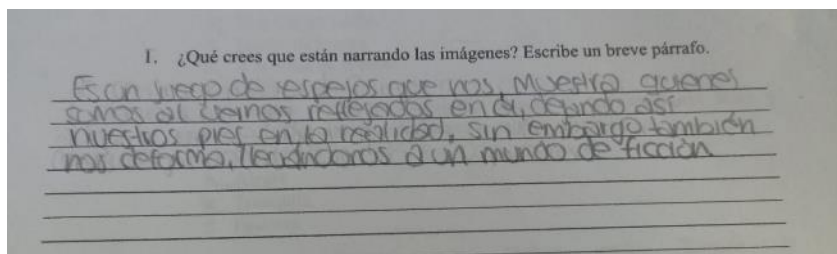 1. ¿Qué crees que están narrando las imágenes? Escribe un breve párrafo.
Es un juego de espejos que nos, muestra quienes
somos al vernos reflejados en él, dejando así
nuestros pies en la realidad, sin embargo también
nos deforma, llevándonos a un mundo de ficción